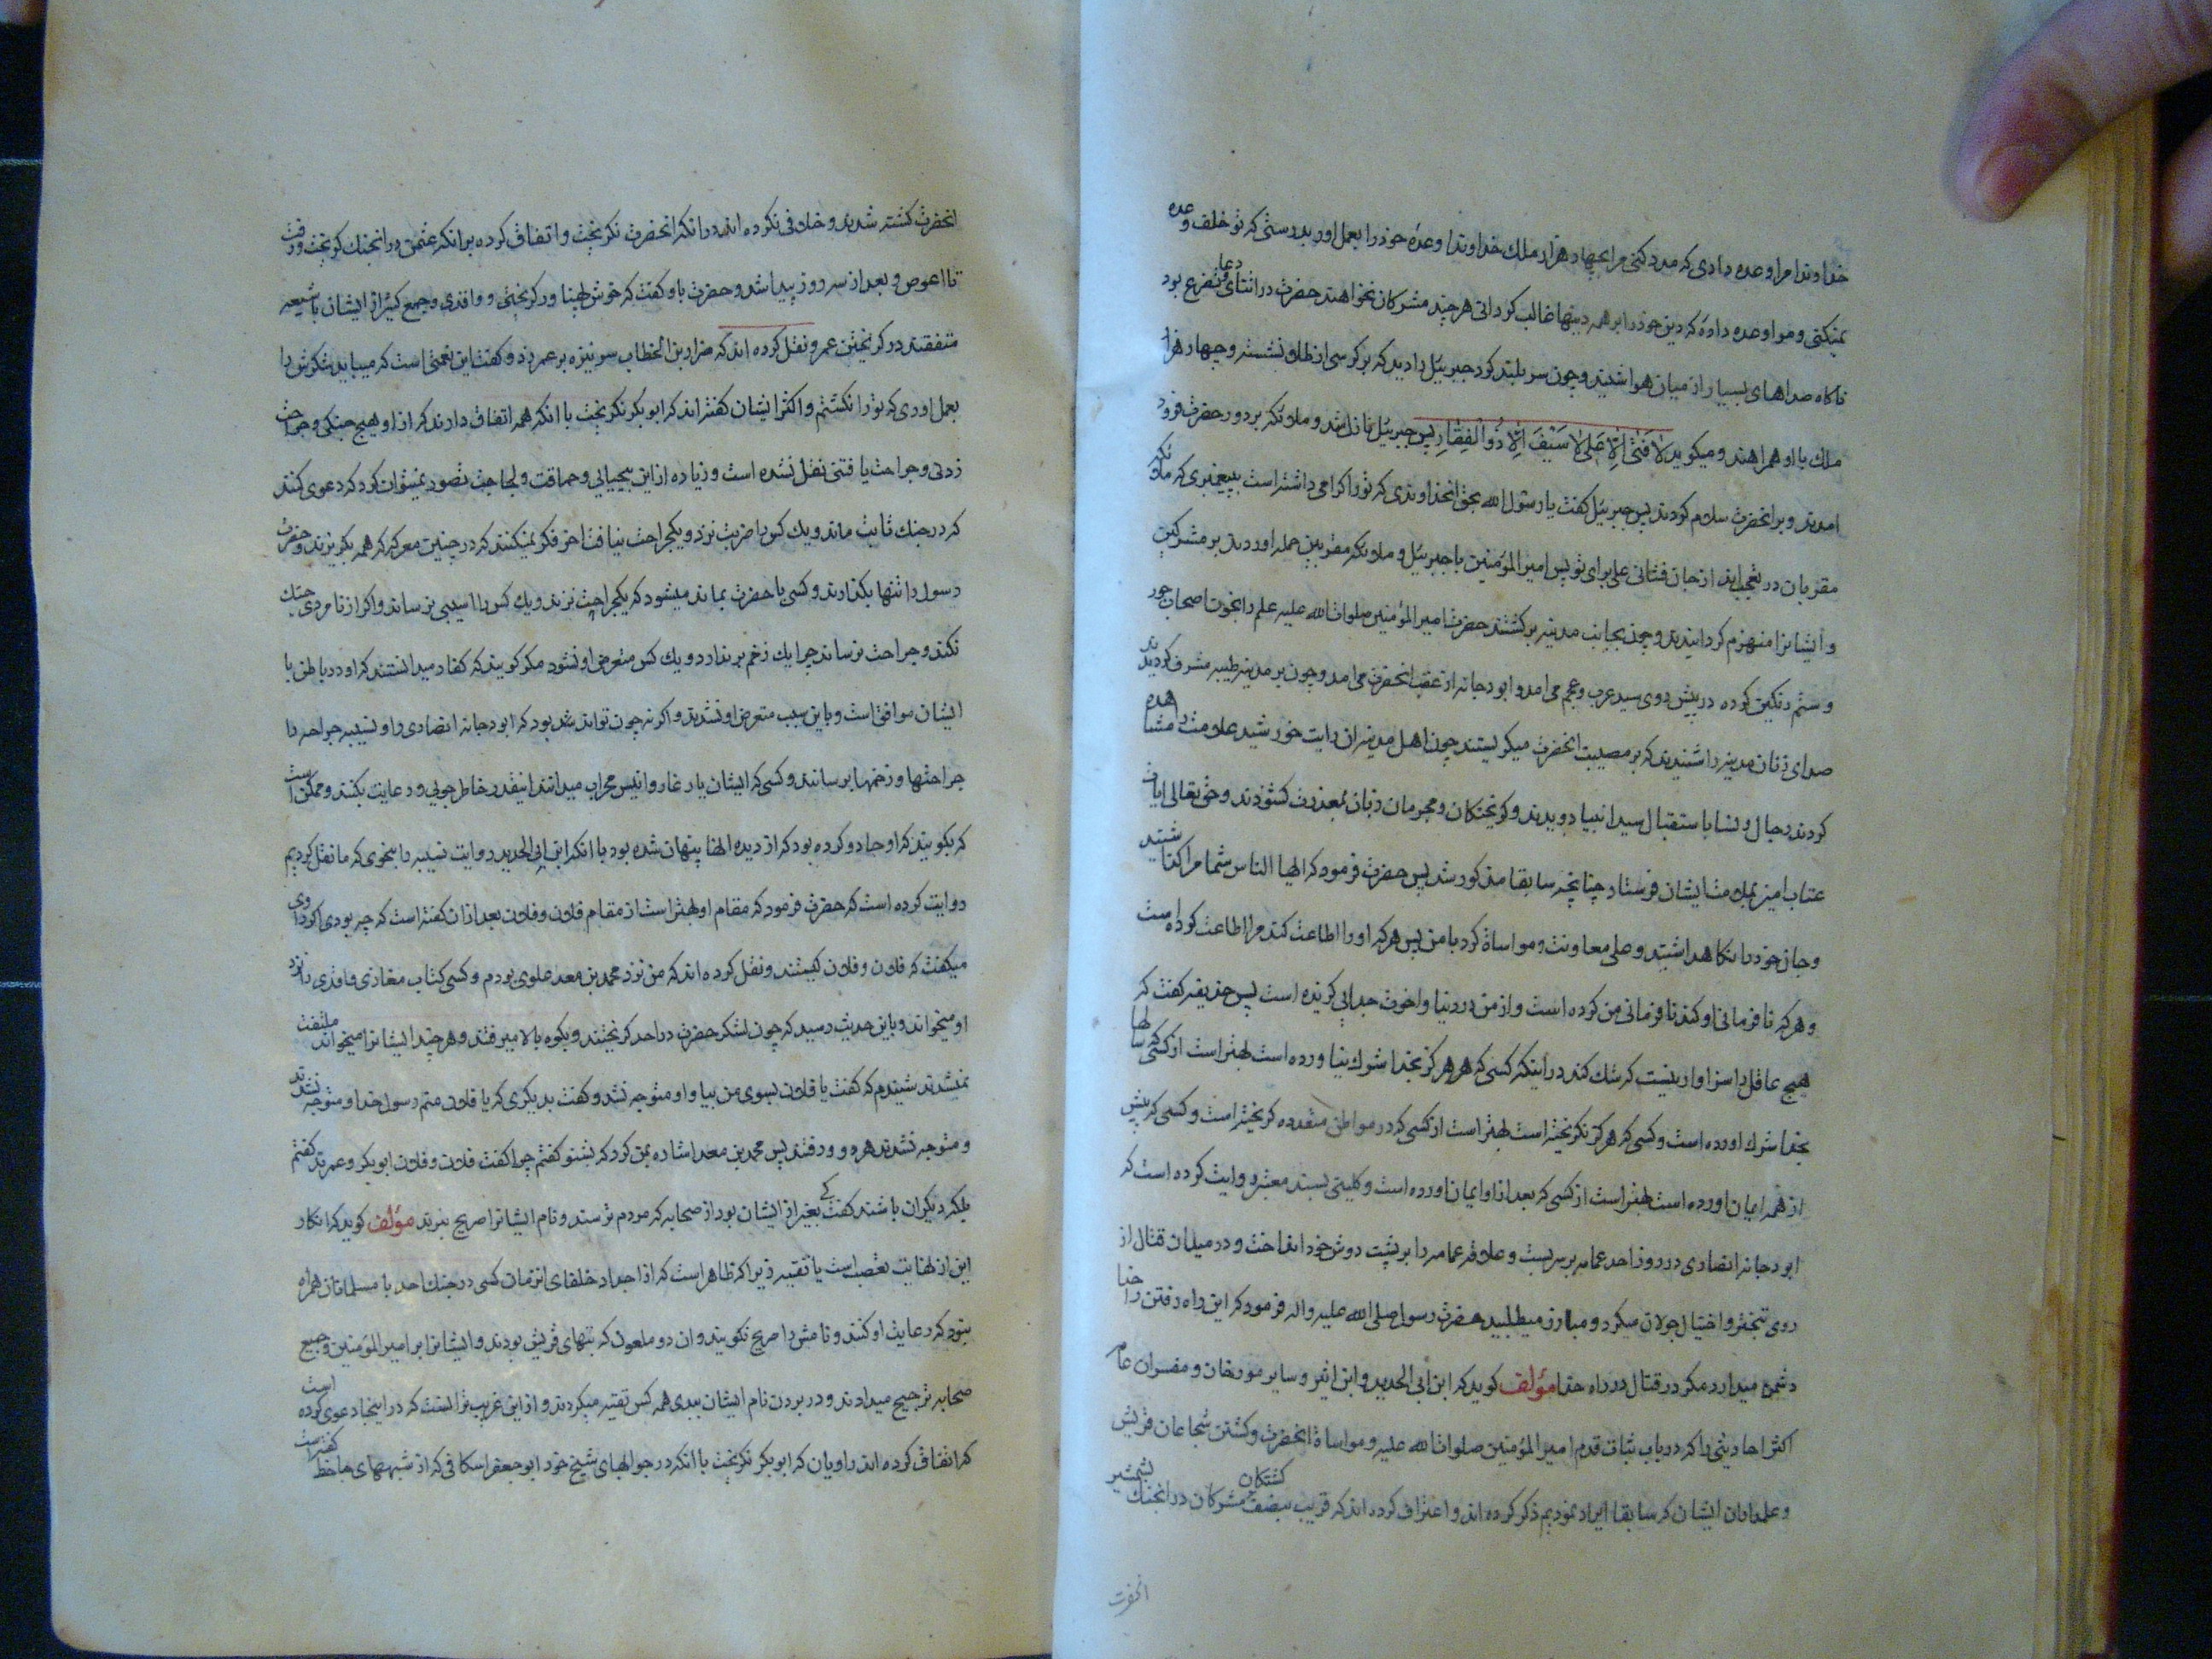 خداوندا مرا وعده دادی که مدد کنی مرا بچهار هزار ملك خداوندا وعدهٔ خود را بعمل اور بدرستی که تو خلف وعده
نمیکنی و مرا وعده دادهٔ که دین خود را بر همه دینها غالب کردانی هر چند مشرکان نخواهند حضرت در اثنای دعا و تضرع بود
ناکاه صداهای بسیار از میان هوا شنید و چون سر بلند کرد جبرئیل را دید که بر کرسی از طلا نشسته و چهار هزار
ملك با او همراهند و میکوید لا فَتٰی اِلّا عَلی لا سَیْفَ اِلّا ذُوالْفِقٰارِ پس جبرئیل نازل شد و ملائکه بر دور حضرت فرود
امدند و بر انحضرت سلام کردند پس جبرئیل کفت یا رسول الله بحق انخداوندی که تو را کرامی داشته است به پیغمبری که ملائکه
مقربان در تعجب‌اند از جان فشانی علی برای تو پس امیر المؤمنین با جبرئیل و ملائکه مقربین حمله اوردند بر مشرکین
و ایشانرا منهزم کردانیدند و چون بجانب مدینه برکشتند حضرت امیر المؤمنین صلوات الله علیه علم را بخون اصحاب جور
و ستم رنکین کرده در پیش روی سید عرب و عجم می امد و ابو دجانه از عقب انحضرت می امد و چون بر مدینه طیبه مشرف کردیدند
صدای زنان مدینه را شنیدند که بر مصیبت انحضرت میکریستند چون اهل مدینه ان رایت خورشید علامت را مشاهده
کردند رجال و نسا باستقبال سید انبیا دویدند و کریختکان و مجرمان زبان بمعذرت کشودند و حق تعالی ایات
عتاب امیز بملامت ایشان فرستاد چنانچه سابقا مذکور شد پس حضرت فرمود که ایها الناس شما مرا کذاشتید
و جان خود را نکاهداشتید و علی معاونت و مواساة کرد با من پس هر که او را اطاعت کند مرا اطاعت کرده است
و هر که نافرمانی او کند نافرمانی من کرده است و از من در دنیا و اخرت جدایی کزیده است پس حذیفه کفت که
هیچ عاقل را سزاوار نیست که شك کند در اینکه کسی که هرگز بخدا شرك نیاورده است بهتر است از کسی که سالها
بخدا شرك اورده است و کسی که هرکز نکریخته است بهتر است از کسی که در مواطن متعدده کریخته است و کسی که پیش
از همه ایمان اورده است بهتر است از کسی که بعد از او ایمان اورده است و کلینی بسند معتبر روایت کرده است که
ابو دجانه انصاری در روز احد عمامه بر سر بست و علاقه عمامه را بر پشت دوش خود انداخت و در میدان قتال از
روی تبختر و اختیال جولان میکرد و مبارز میطلبید حضرت رسول صلی الله علیه واله فرمود که این راه رفتن را خدا
دشمن میدارد مکر در قتال در راه خدا مؤلف کوید که ابن ابی الحدید و ابن اثیر و سایر مورخان و مفسران عامه
اکثر احادیثی را که در باب ثبات قدم امیر المؤمنین صلوات الله علیه و مواساة انحضرت و کشتن شجاعان قریش
و علمداران ایشان که سابقا ایراد نمودیم ذکر کرده اند و اعتراف کرده اند که قریب بنصف کشتکان مشرکان در انجنك بشمشیر
انحضرت
انحضرت کشته شدند و خلافی نکرده اند در انکه انحضرت نکریخت و اتفاق کرده بر انکه عثمان در انجنك کریخت و رفت
تا اعوص و بعد از سه روز پیدا شد و حضرت باو کفت که خوش پهنا ور کریختی و واقدی و جمع کثیر از ایشان با شیعه
متفقند در کریختن عمر و نقل کرده اند که ضرار بن الخطاب سر نیزه بر عمر زد و کفت این نعمتی است که میباید شکرش را
بعمل اوری که تو را نکشتم و اکثر ایشان کفته اند که ابو بکر نکریخت با انکه همه اتفاق دارند که از او هیچ جنکی و جراحت
زدنی و جراحت یافتنی نقل نشده است و زیاده از این بیحیایی و حماقت و لجاجت تصور نمیتوان کرد که دعوی کنند
که در جنك ثابت ماند و یك کس را ضربت نزد و یکجراحت نیافت اخر فکر نمیکنند که در چنین معرکه که همه بکریزند و حضرت
رسول را تنها بکذارند و کسی با حضرت بماند میشود که یکجراحت نزند و یك کس را اسیبی نرساند و اکر از نامردی جنك
نکند و جراحت نرساند چرا یك زخم برندارد و یك کس متعرض او نشود مکر کویند که کفار میدانستند که او در باطن با
ایشان موافق است و باین سبب متعرض او نشدند و اکرنه چون تواند شد بود که ابو دجانه انصاری را و نسیبه جراحه را
جراحتها و زخمها برسانند و کسی که ایشان یار غار و انیس محراب میدانند اینقدر خاطر جویی و رعایت بکنند و ممکن است
که بکویند که او جادو کرده بود که از دیده انها پنهان شده بود با انکه ابن ابی الحدید روایت نسیبه را بنحوی که ما نقل کردیم
روایت کرده است که حضرت فرمود که مقام او بهتر است از مقام فلان و فلان بعد از ان کفته است که چه بودی اکر راوی
میکفت که فلان و فلان کیستند و نقل کرده اند که من نزد محمد بن معد علوی بودم و کسی کتاب مغازی واقدی را نزد
او میخواند و باین حدیث رسید که چون لشکر حضرت در احد کریختند و بکوه بالا میرفتند و هر چند ایشانرا میخواند ملتفت
نمیشدند شنیدم که کفت یا فلان بسوی من بیا و او متوجه نشد و کفت بدیکری که یا فلان منم رسول خدا و متوجه نشدند
و متوجه نشدند هر دو و رفتند پس محمد بن معد اشاره بمن کرد که بشنو کفتم چرا کفت فلان و فلان ابوبکر و عمرند کفتم
بلکه دیکران باشند کفت بغیر از ایشان کی بود از صحابه که مردم ترسند و نام ایشانرا صریح نبرند مؤلف کوید که انکار
این از نهایت تعصب است یا تقیه زیرا که ظاهر است که از اجداد خلفای انزمان کسی در جنك احد با مسلمانان همراه
نبود که رعایت او کنند و نامش را صریح نکویند و ان دو ملعون که بتهای قریش بودند و ایشانرا بر امیر المؤمنین و جمیع
صحابه ترجیح میدادند و در بردن نام ایشان ببدی همه کس تقیه میکردند و از این غریب تر انست که در اینجا دعوی کرده است
که اتفاق کرده اند راویان که ابوبکر نکریخت با انکه در جوابهای شیخ خود ابو جعفر اسکافی که از شبهههای جاحظ کفته است